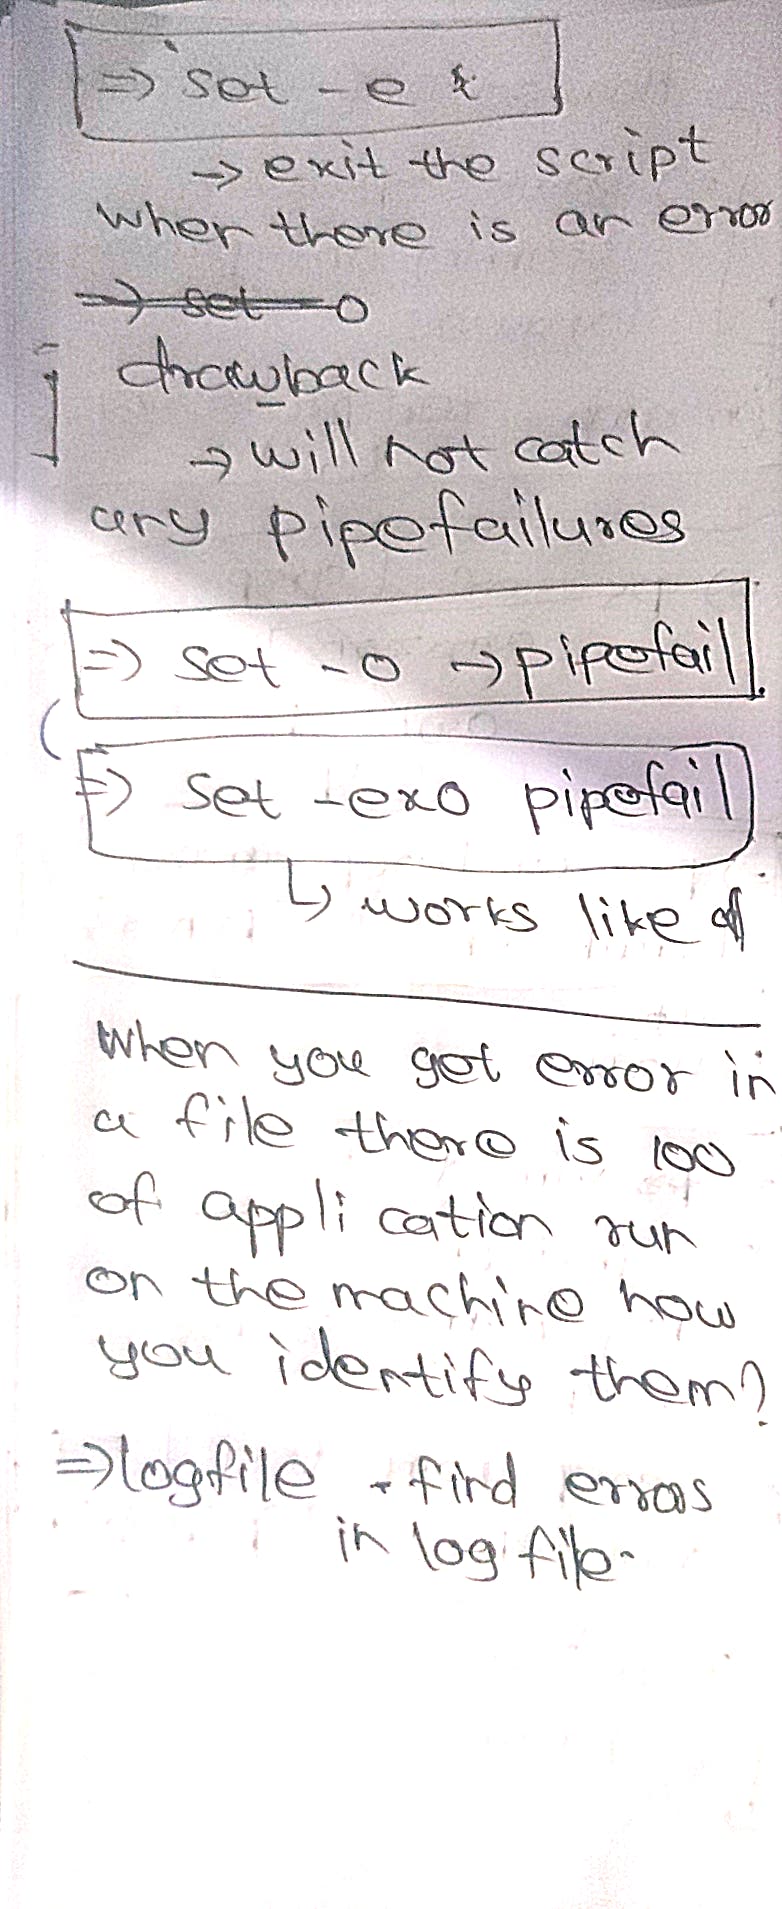 => set -e
-> exit the script
when there is an error
=> set -o
drawback
-> will not catch
any pipefailures
=> set -o -> pipefail
=> set -exo pipefail
↳ works like
when you get error in
a file there is 100
of appli cation run
on the machine how
you identify them?
=> logfile → find errors
in log file.